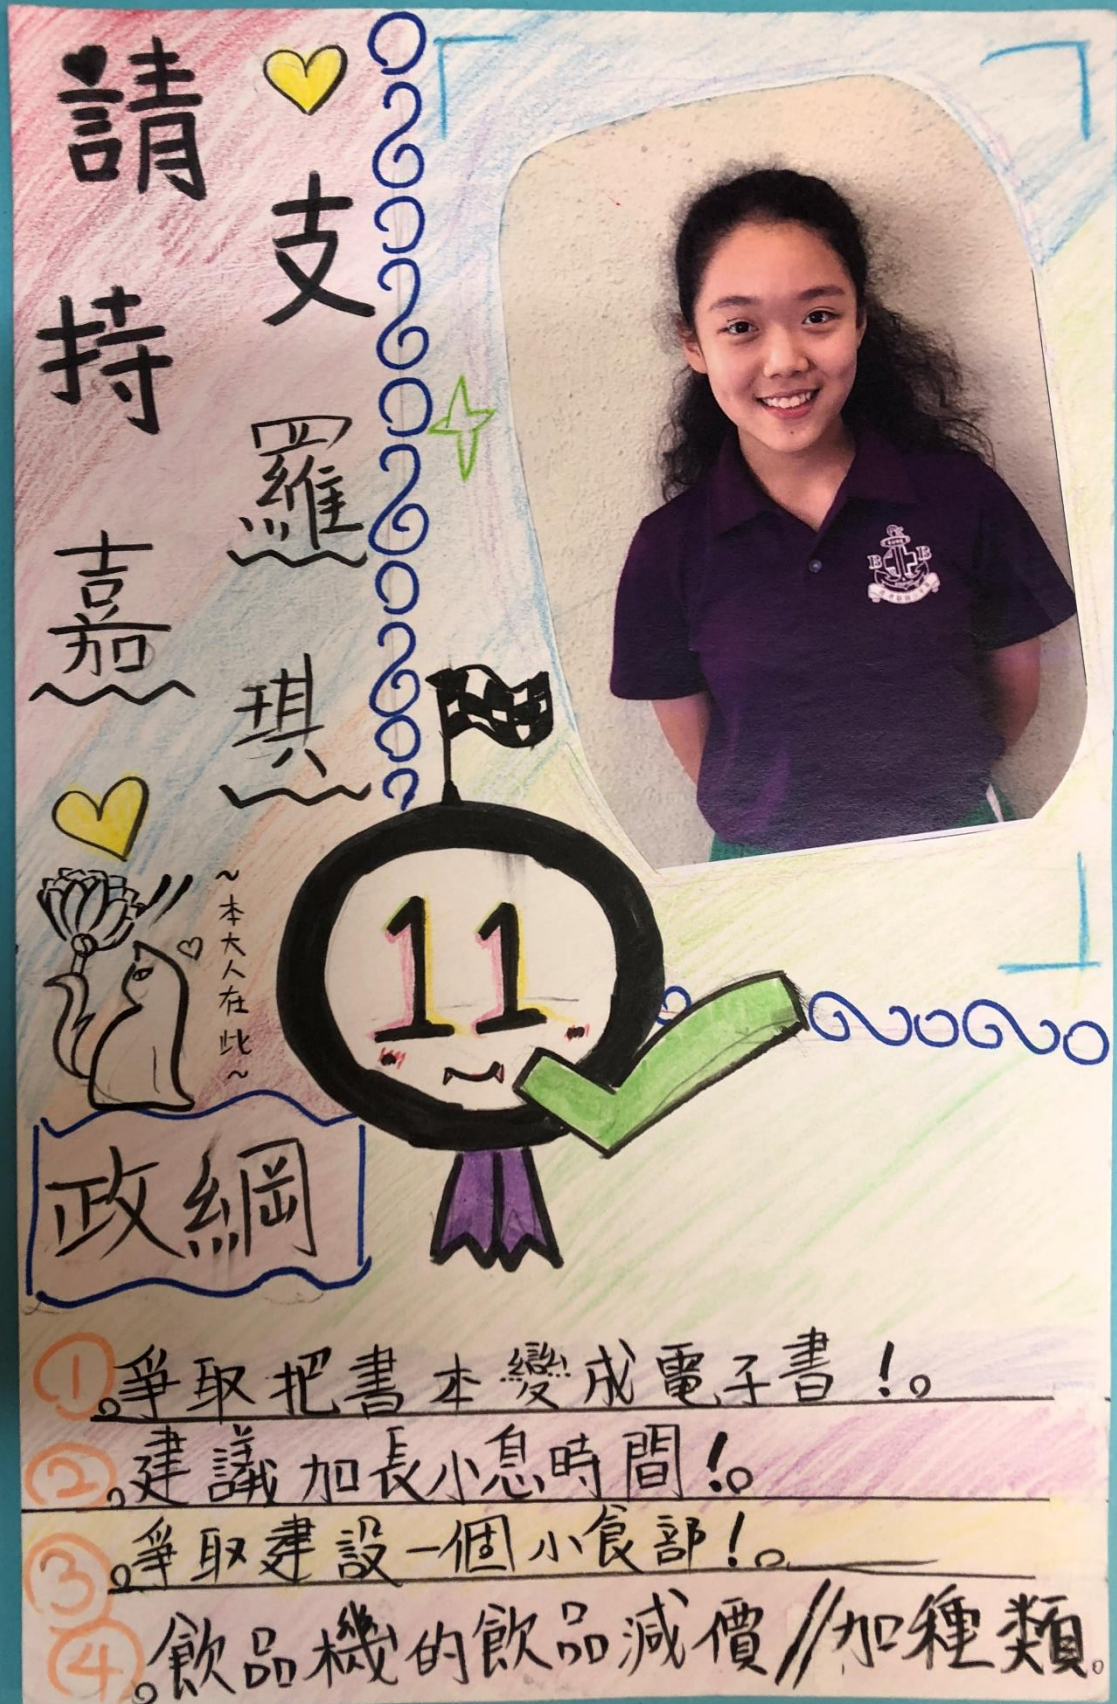 請支持羅嘉琪
11
~本大人在此~
政綱
① 爭取把書本變成電子書!。
② 建議加長小息時間!。
③ 爭取建設一個小食部!。
④ 飲品機的飲品減價//加種類。
B B